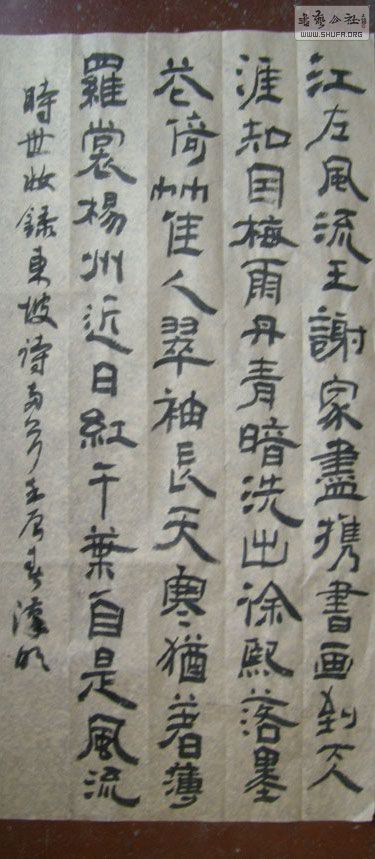 書藝公社
WWW.SHUFA.ORG
江左風流王謝家盡携書画到天
涯却因梅雨丹青暗洗出徐熙落墨
花倚竹佳人翠袖長天寒猶著薄
羅裳楊州近日紅千葉自是風流
時世妝錄東坡诗